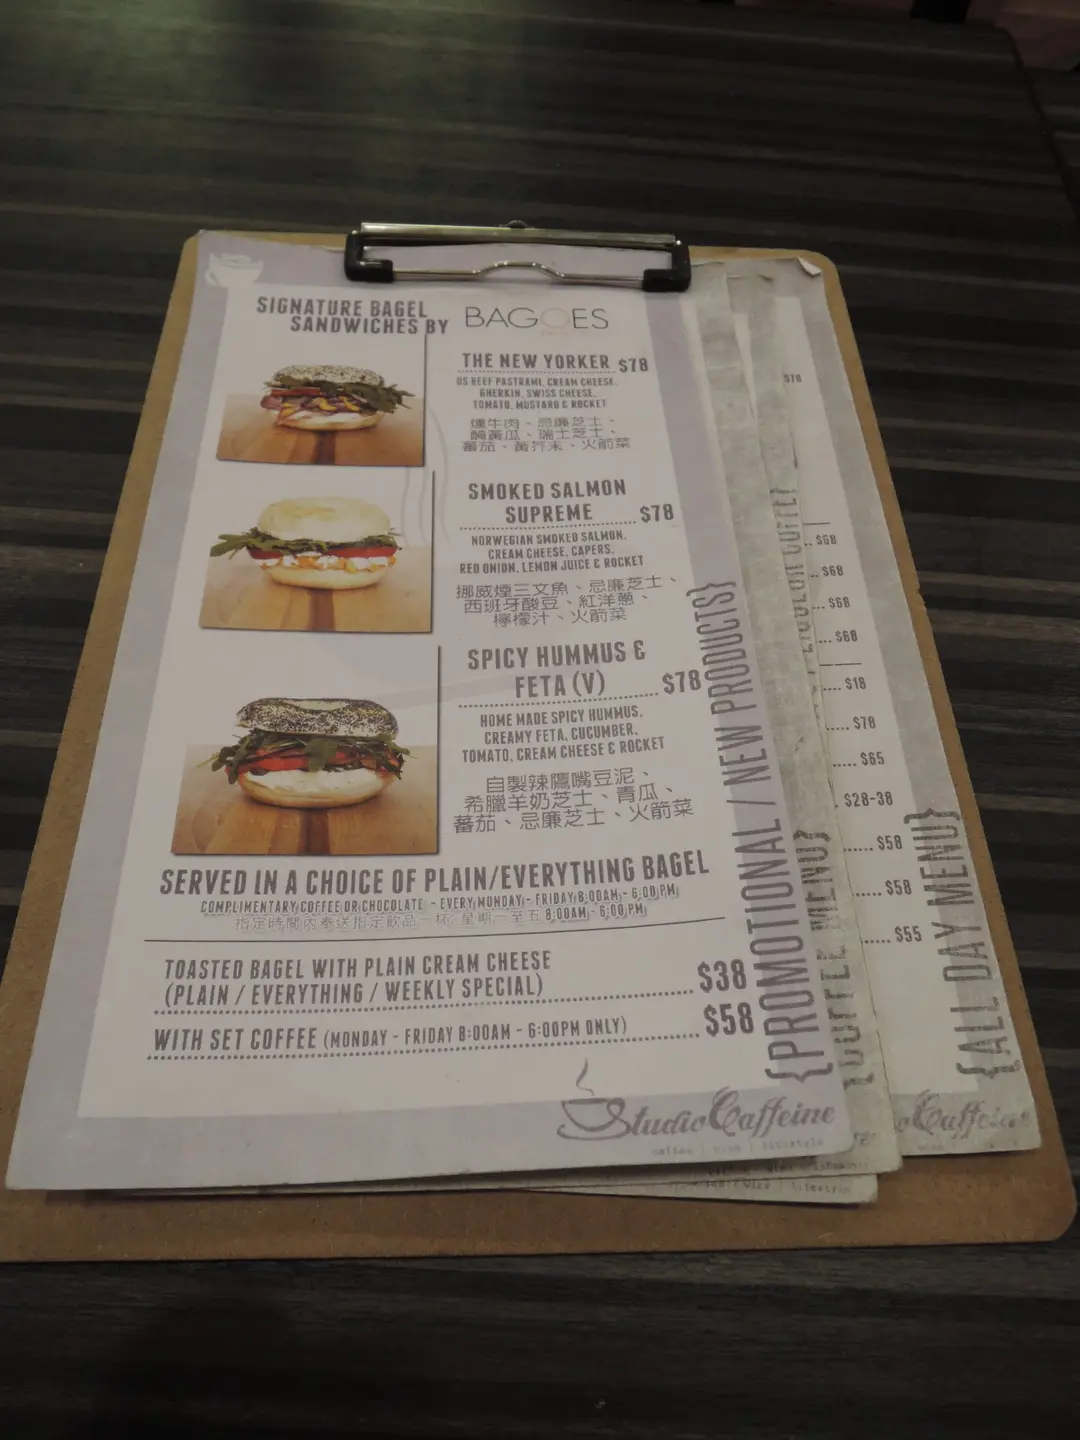 SIGNATURE BAGEL
SANDWICHES BY
BAGOES
THE NEW YORKER $78
US BEEF PASTRAMI, CREAM CHEESE,
GHERKIN, SWISS CHEESE,
TOMATO, MUSTARD & ROCKET
燻牛肉、忌廉芝士、
醃黃瓜、瑞士芝士、
蕃茄、黃芥末、火箭菜
SMOKED SALMON
SUPREME $78
NORWEGIAN SMOKED SALMON,
CREAM CHEESE, CAPERS,
RED ONION, LEMON JUICE & ROCKET
挪威煙三文魚、忌廉芝士、
西班牙酸豆、紅洋蔥、
檸檬汁、火箭菜
SPICY HUMMUS &
FETA (V) $78
HOME MADE SPICY HUMMUS,
CREAMY FETA, CUCUMBER,
TOMATO, CREAM CHEESE & ROCKET
自製辣鷹嘴豆泥、
希臘羊奶芝士、青瓜、
蕃茄、忌廉芝士、火箭菜
SERVED IN A CHOICE OF PLAIN/EVERYTHING BAGEL
COMPLIMENTARY COFFEE OR CHOCOLATE - EVERY MONDAY - FRIDAY 8:00AM - 6:00 PM
指定時間內奉送指定飲品一杯 星期一至五 8:00AM - 6:00 PM
TOASTED BAGEL WITH PLAIN CREAM CHEESE
(PLAIN / EVERYTHING / WEEKLY SPECIAL) $38
WITH SET COFFEE (MONDAY - FRIDAY 8:00AM - 6:00PM ONLY) $58
Studio Caffeine
coffee | wine | lifestyle
{PROMOTIONAL / NEW PRODUCTS}
{COFFEE MENU}
$78
$68
$68
$68
$68
$18
$78
$65
$28-38
$58
$58
$55
{ALL DAY MENU}
o Caffeine